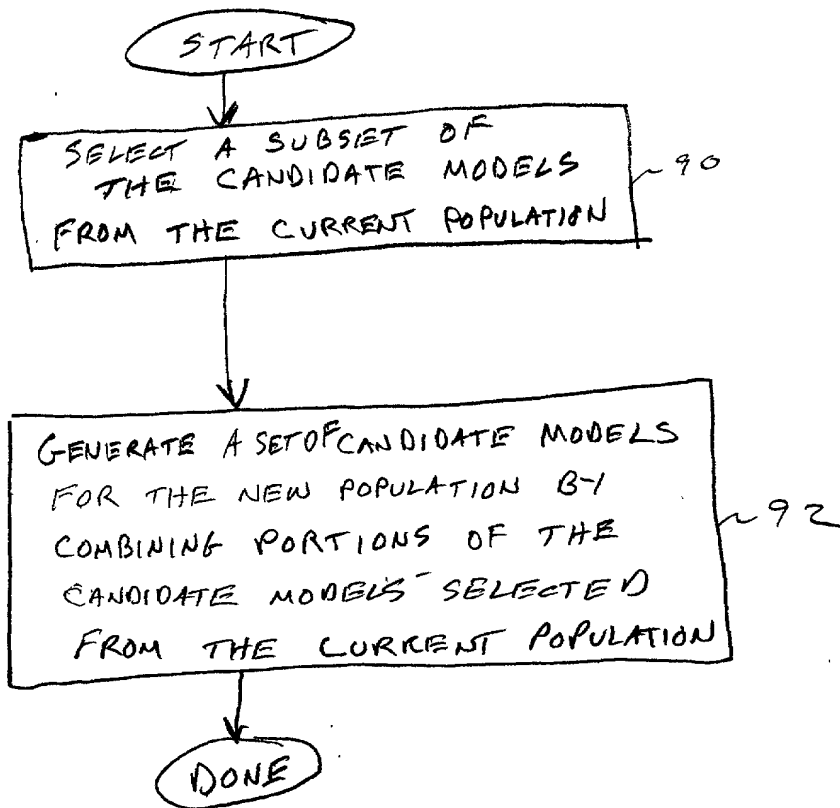 START
SELECT A SUBSET OF
THE CANDIDATE MODELS
FROM THE CURRENT POPULATION
~ 90
GENERATE A SET OF CANDIDATE MODELS
FOR THE NEW POPULATION BY
COMBINING PORTIONS OF THE
CANDIDATE MODELS SELECTED
FROM THE CURRENT POPULATION
~ 92
DONE